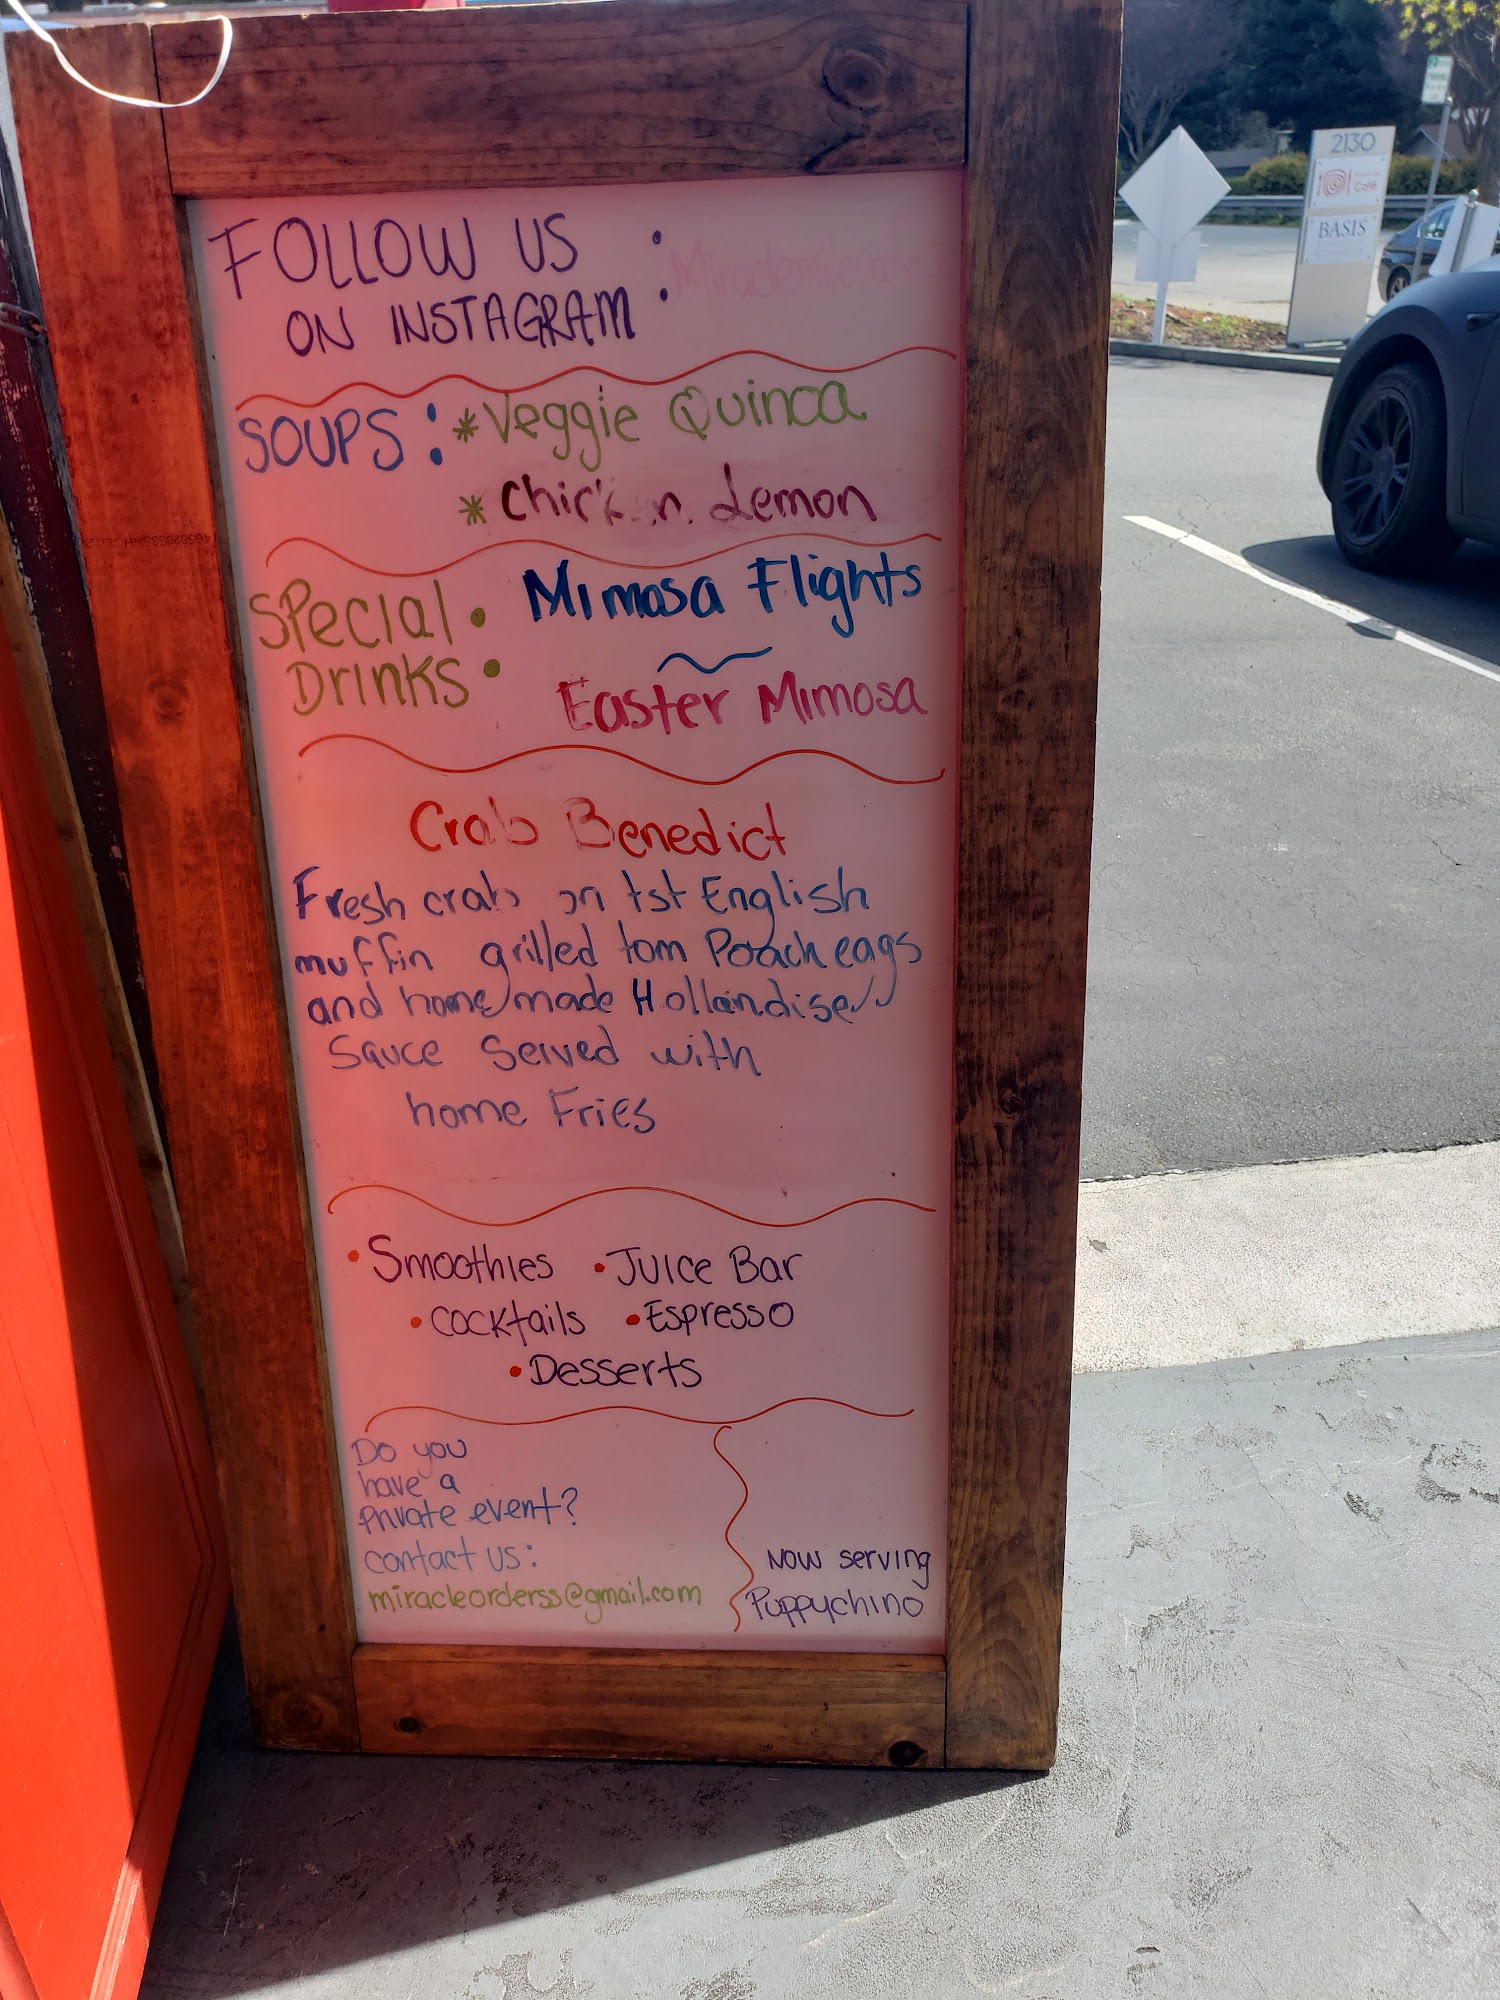 FOLLOW US :
ON INSTAGRAM
SOUPS: *Veggie Quinoa
* Chicken Lemon
Special Drinks : Mimosa Flights
~
Easter Mimosa
Crab Benedict
Fresh crab on tst English
muffin grilled tom Poach eggs
and home made Hollandise
Sauce Served with
home Fries
• Smoothies • Juice Bar
• cocktails • Espresso
• Desserts
Do you
have a
private event?
contact us:
miracleorderss@gmail.com
Now serving
Puppychino
2130
Café
BASIS